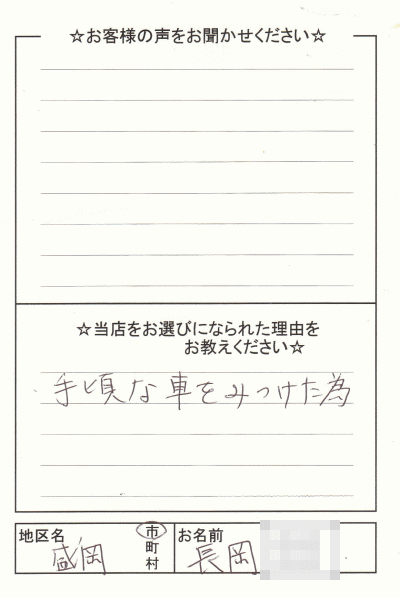 ☆お客様の声をお聞かせください☆
☆当店をお選びになられた理由を
お教えください☆
手頃な車をみつけた為
地区名 盛岡 市
町
村
お名前 長岡